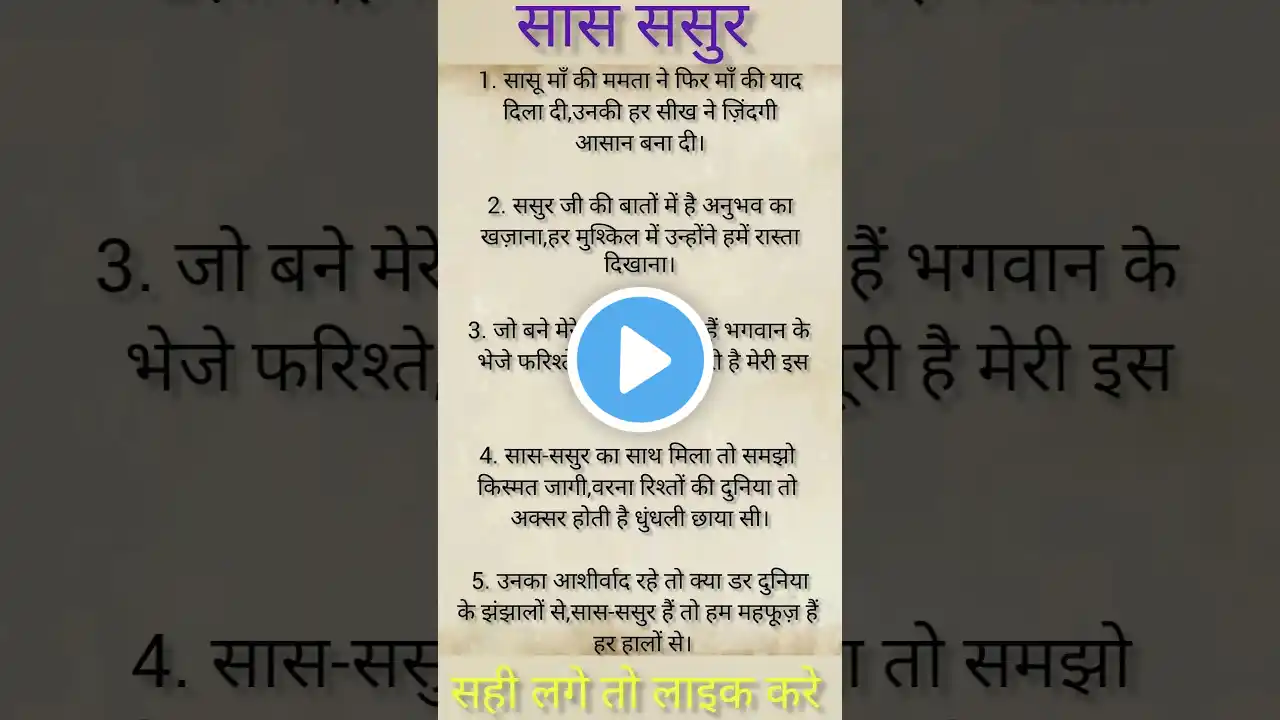 सास ससुर
1. सासू माँ की ममता ने फिर माँ की याद
दिला दी,उनकी हर सीख ने ज़िंदगी
आसान बना दी।
2. ससुर जी की बातों में है अनुभव का
खज़ाना,हर मुश्किल में उन्होंने हमें रास्ता
दिखाना।
3. जो बने मेरे हैं भगवान के
भेजे फरिश्ते है मेरी इस
4. सास-ससुर का साथ मिला तो समझो
किस्मत जागी,वरना रिश्तों की दुनिया तो
अक्सर होती है धुंधली छाया सी।
5. उनका आशीर्वाद रहे तो क्या डर दुनिया
के झंझालों से,सास-ससुर हैं तो हम महफूज़ हैं
हर हालों से।
सही लगे तो लाइक करे
3. जो बने मेरे हैं भगवान के
भेजे फरिश्ते, है मेरी इस
4. सास-ससु तो समझो